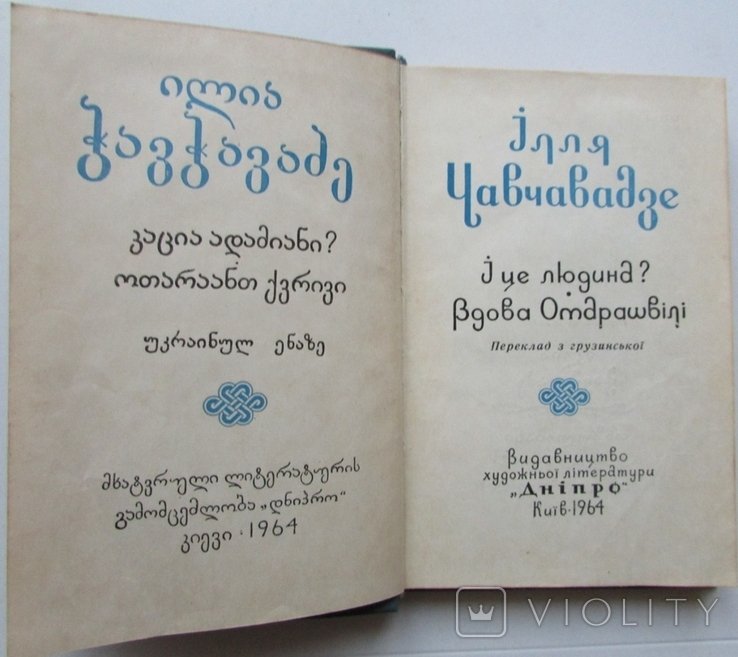 ილია
ჭავჭავაძე
კაცია ადამიანი?
ოთარაანთ ქვრივი
უკრაინულ ენაზე
მხატვრული ლიტერატურის
გამომცემლობა „დნიპრო“
კიევი · 1964
Ілля
Чавчавадзе
І це людина?
Вдова Отарашвілі
Переклад з грузинської
Видавництво
художньої літератури
„Дніпро“
Київ · 1964
VIOLITY